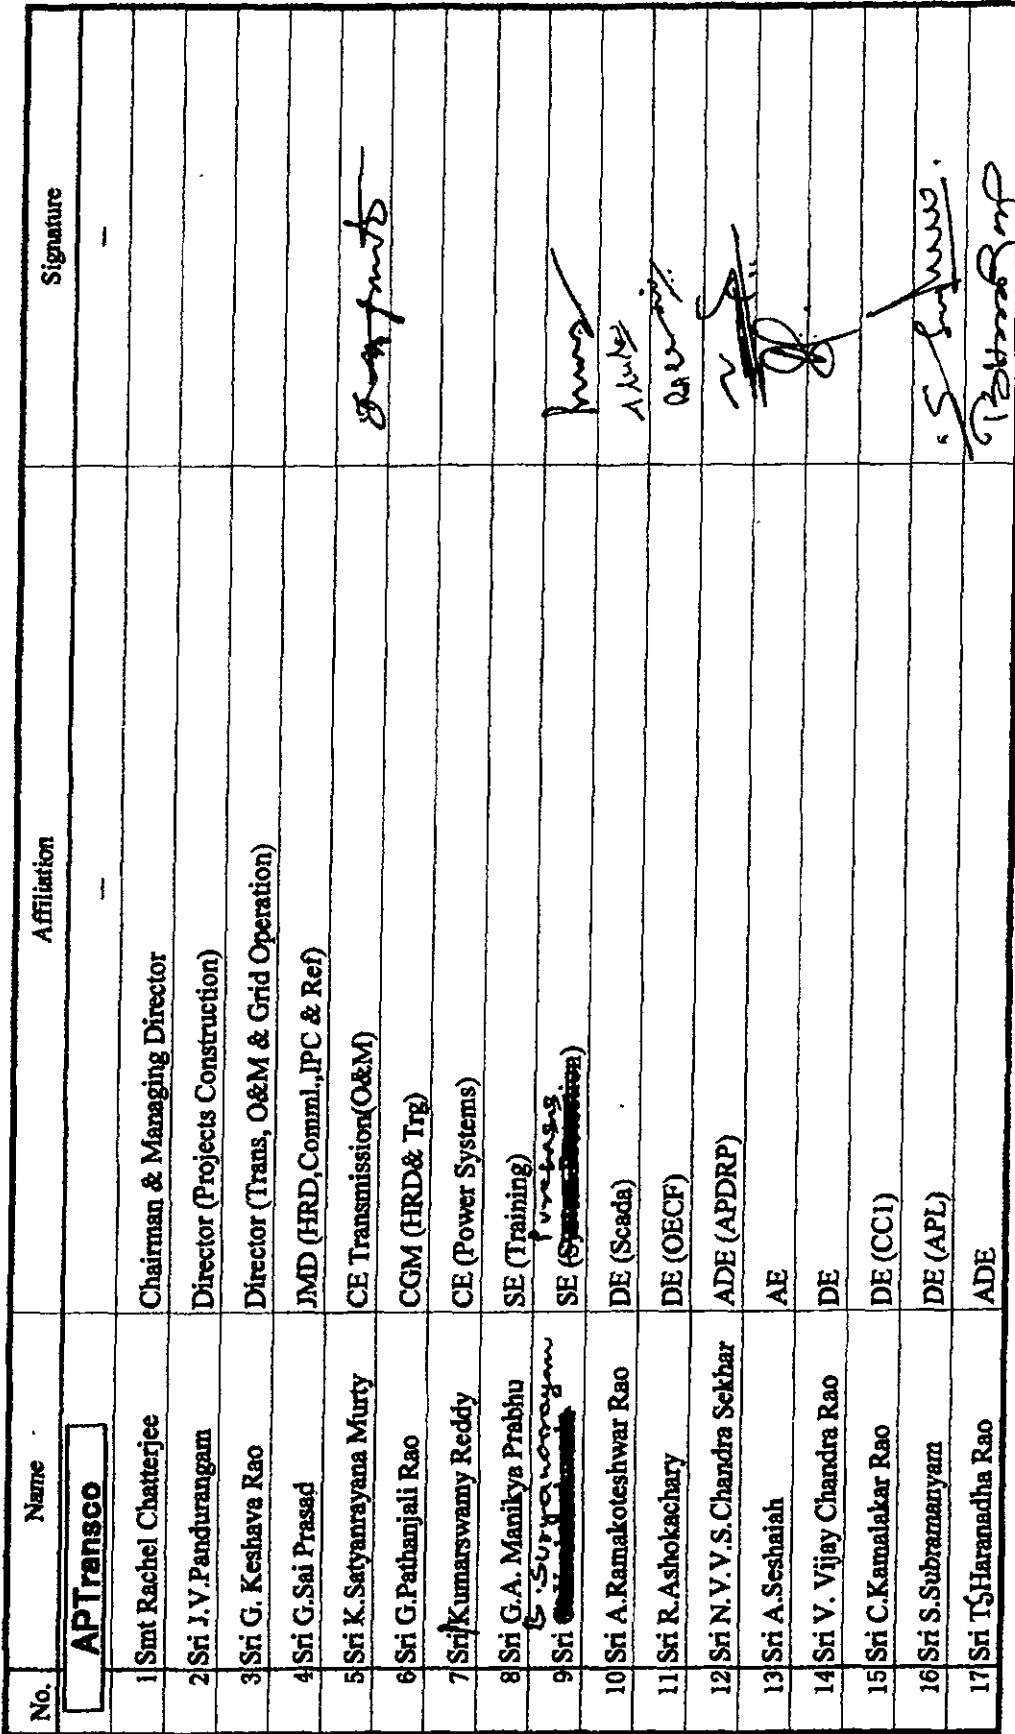 No. Name Affiliation Signature
APTransco – –
1 Smt Rachel Chatterjee Chairman & Managing Director
2 Sri J.V.Pandurangam Director (Projects Construction)
3 Sri G. Keshava Rao Director (Trans, O&M & Grid Operation)
4 Sri G.Sai Prasad JMD (HRD,Comml.,IPC & Ref)
5 Sri K.Satyanrayana Murty CE Transmission(O&M)
6 Sri G.Pathanjali Rao CGM (HRD& Trg)
7 Sri Kumarswamy Reddy CE (Power Systems)
8 Sri G.A. Manikya Prabhu SE (Training)
9 Sri G. Suryanarayana SE (Purchases)
10 Sri A.Ramakoteshwar Rao DE (Scada)
11 Sri R.Ashokachary DE (OECF)
12 Sri N.V.V.S.Chandra Sekhar ADE (APDRP)
13 Sri A.Seshaiah AE
14 Sri V. Vijay Chandra Rao DE
15 Sri C.Kamalakar Rao DE (CC1)
16 Sri S.Subramanyam DE (APL)
17 Sri TS Haranadha Rao ADE